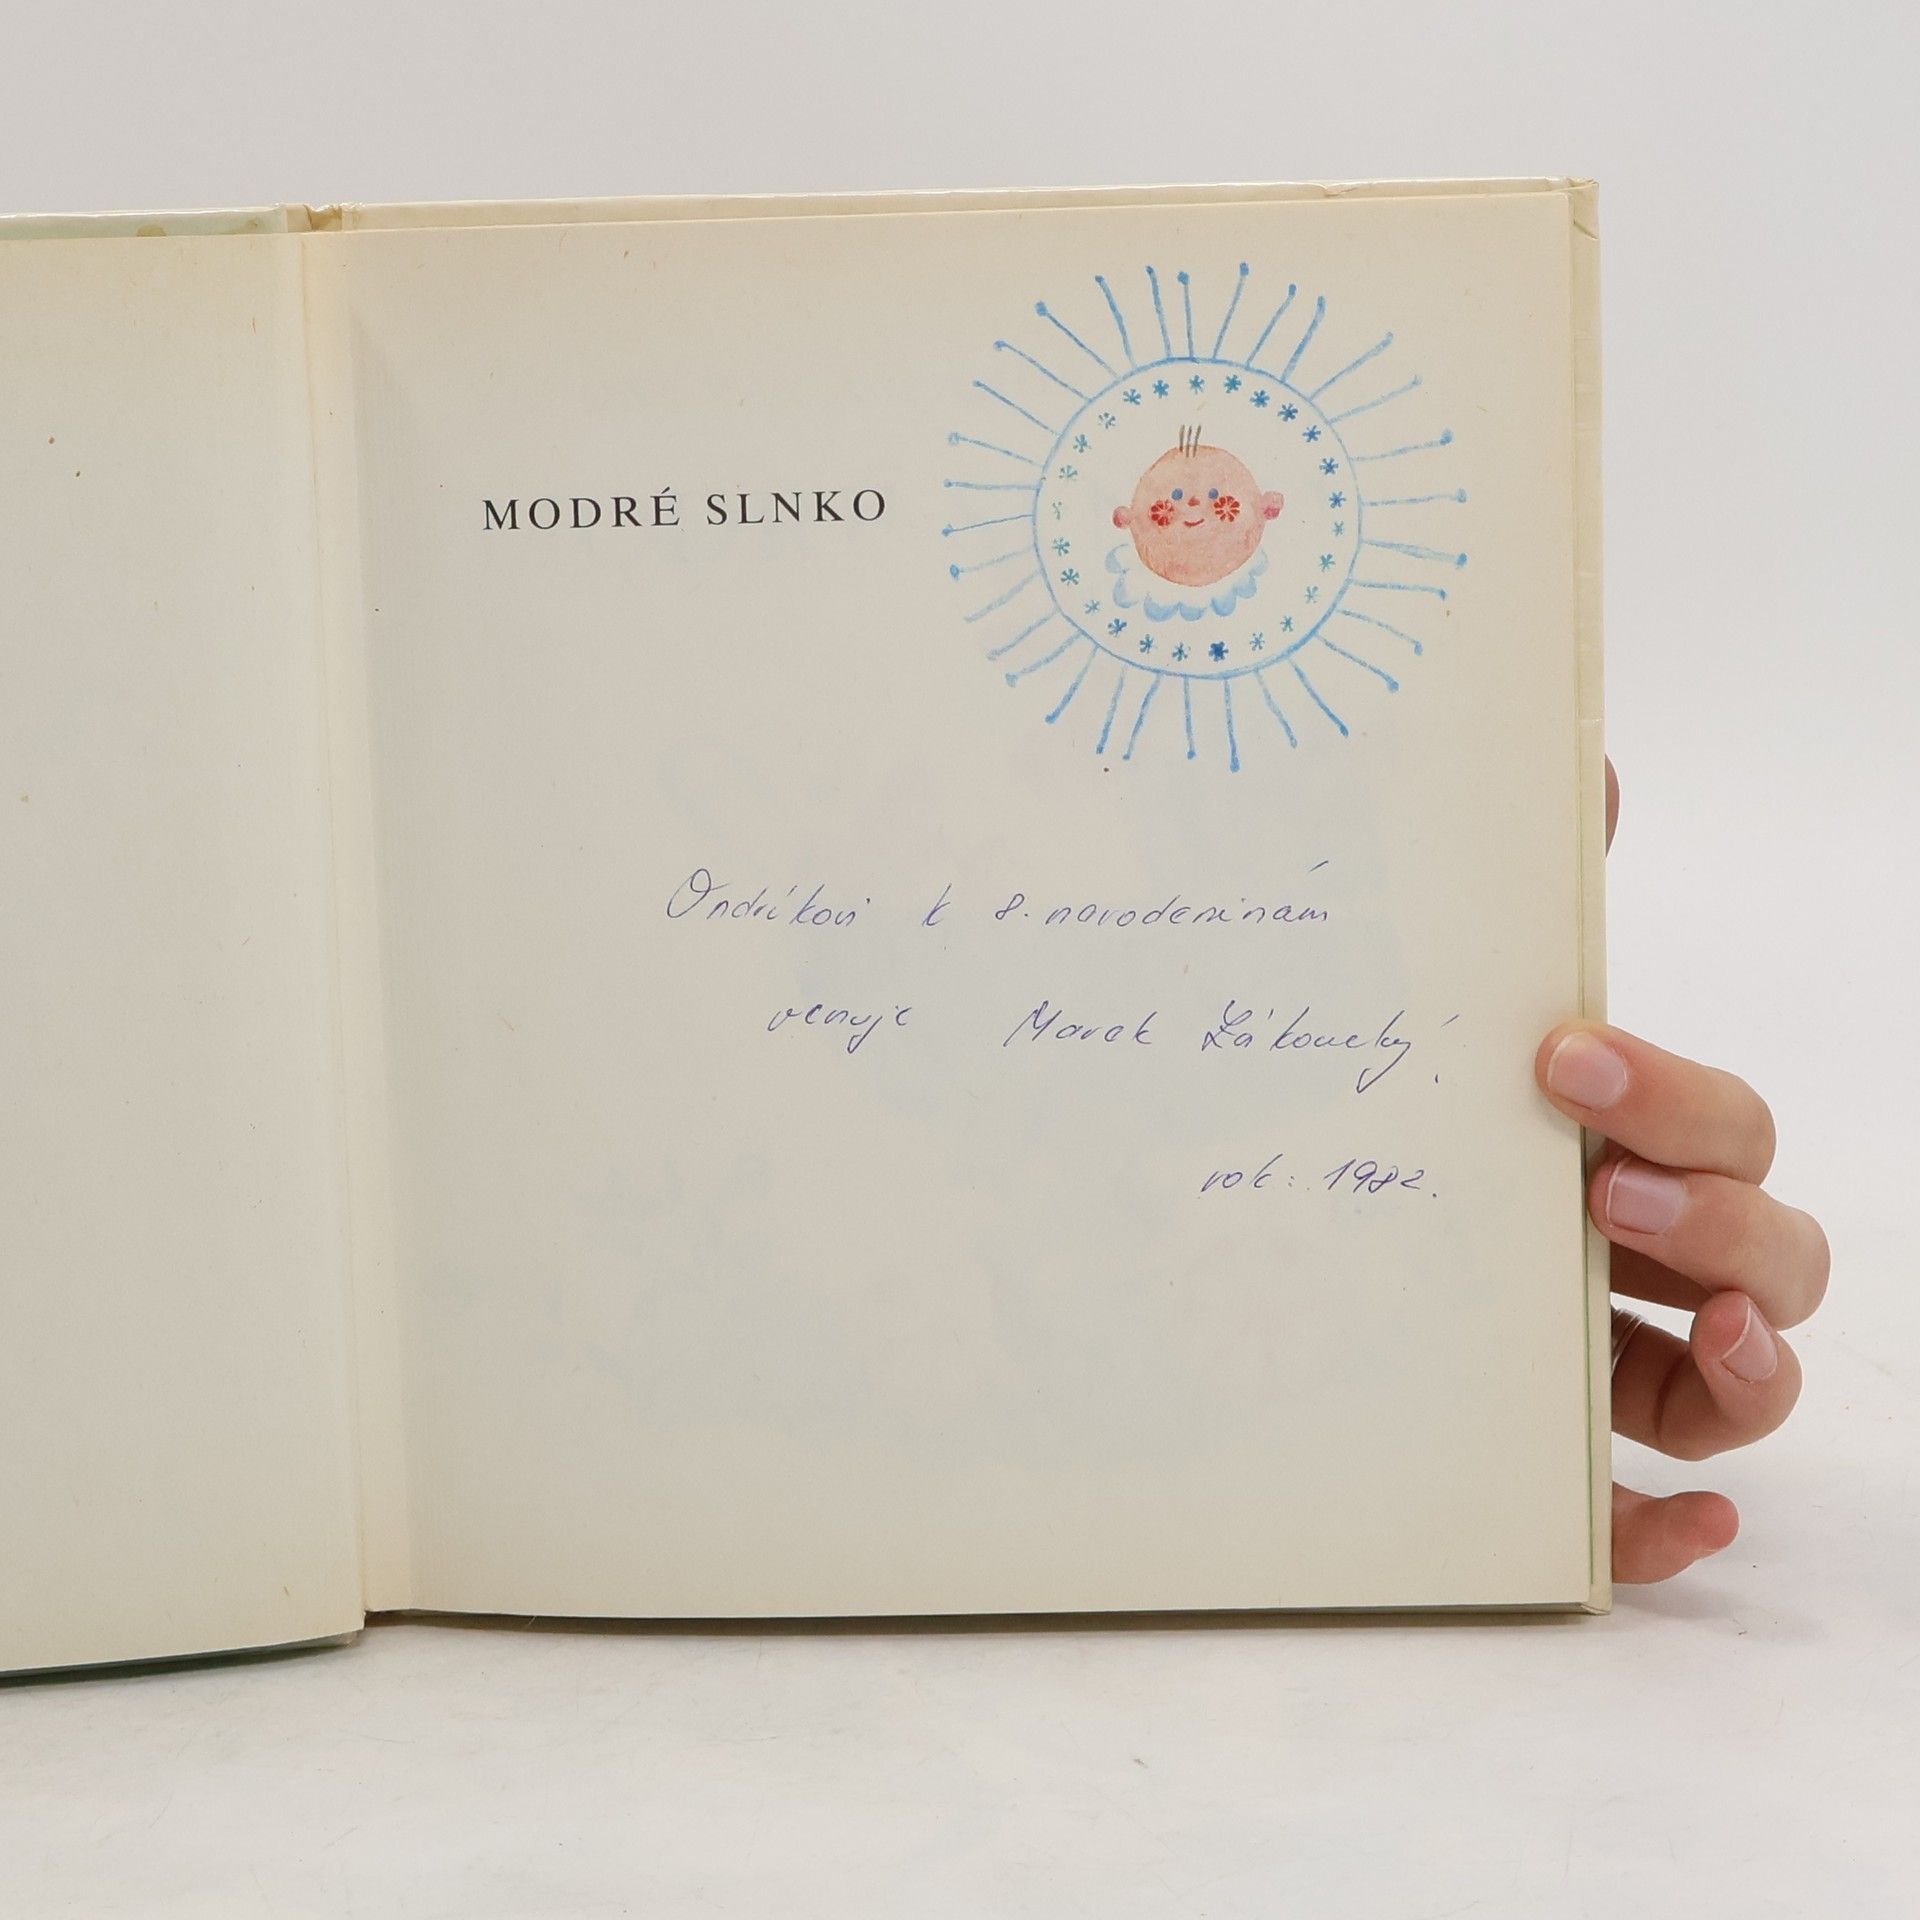 MODRÉ SLNKO
Ondríkovi k 8. narodeninám
venuje Marek
rok: 1982.